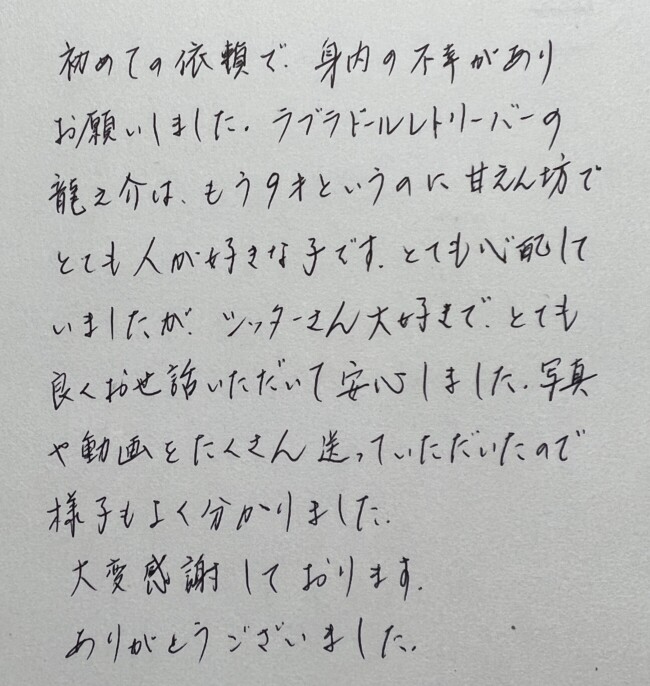 初めての依頼で、身内の不幸があり
お願いしました。ラブラドールレトリーバーの
龍之介は、もう9才というのに甘えん坊で
とても人が好きな子です。とても心配して
いましたが、シッターさん大好きで、とても
良くお世話いただいて安心しました。写真
や動画をたくさん送っていただいたので
様子もよく分かりました。
大変感謝しております。
ありがとうございました。